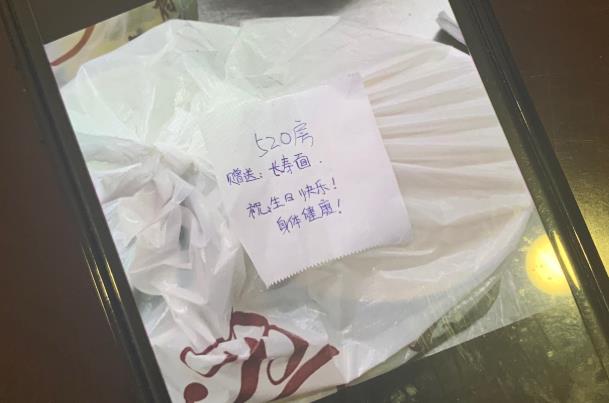 520房
赠送：长寿面．
祝：生日快乐！
身体健康！